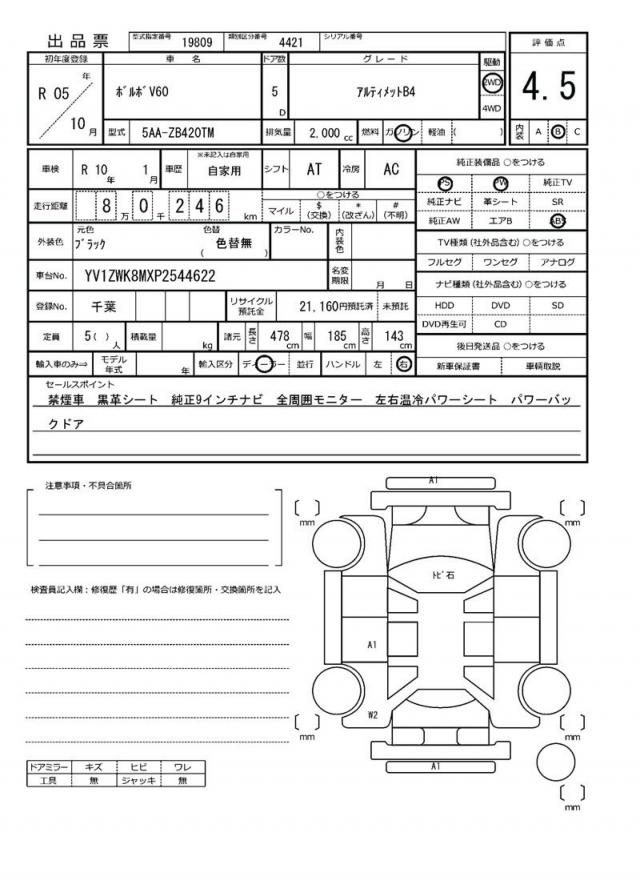 出品票 型式指定番号 19809 類別区分番号 4421 シリアル番号
初年度登録 車名 ドア数 グレード 駆動 評価点
R 05 年 10 月 ﾎﾞﾙﾎﾞV60 5 D ｱﾙﾃｨﾒｯﾄB4 2WD 4WD 4.5
型式 5AA-ZB420TM 排気量 2,000 cc 燃料 ガソリン 軽油 ( ) 内装 A B C
車検 R 10 年 1 月 車歴 ※未記入は自家用 自家用 シフト AT 冷房 AC 純正装備品 ○をつける
PS PW 純正TV
走行距離 8 万 0 千 2 4 6 km ○をつける マイル $ (交換) * (改ざん) # (不明) 純正ナビ 革シート SR
純正AW エアB ABS
外装色 元色 ﾌﾞﾗｯｸ 色替 ( 色替無 ) カラーNo. 内装色 TV種類 (社外品含む) ○をつける
フルセグ ワンセグ アナログ
車台No. YV1ZWK8MXP2544622 名変期限 月 日 ナビ種類 (社外品含む) ○をつける
登録No. 千葉 リサイクル預託金 21,160円預託済 未預託 HDD DVD SD
DVD再生可 CD
定員 5( ) 人 積載量 kg 諸元 長さ 478 cm 幅 185 cm 高さ 143 cm 後日発送品 ○をつける
輸入車のみ⇒ モデル年式 年 輸入区分 ディーラー 並行 ハンドル 左 右 新車保証書 車輌取説
セールスポイント
禁煙車 黒革シート 純正9インチナビ 全周囲モニター 左右温冷パワーシート パワーバッ
クドア
注意事項・不具合箇所
検査員記入欄：修復歴「有」の場合は修復箇所・交換箇所を記入
A1
mm mm
ﾄﾋﾞ石
A1
W2
mm mm
A1
mm
ドアミラー キズ ヒビ ワレ
工具 無 ジャッキ 無